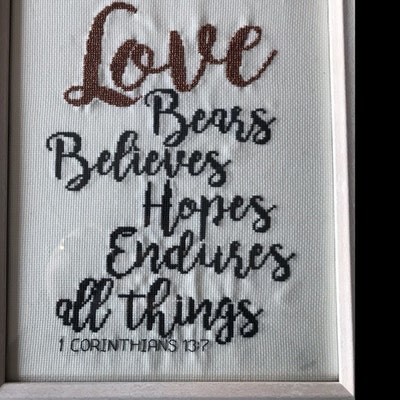 Love
Bears
Believes
Hopes
Endures
all things
1 CORINTHIANS 13:7